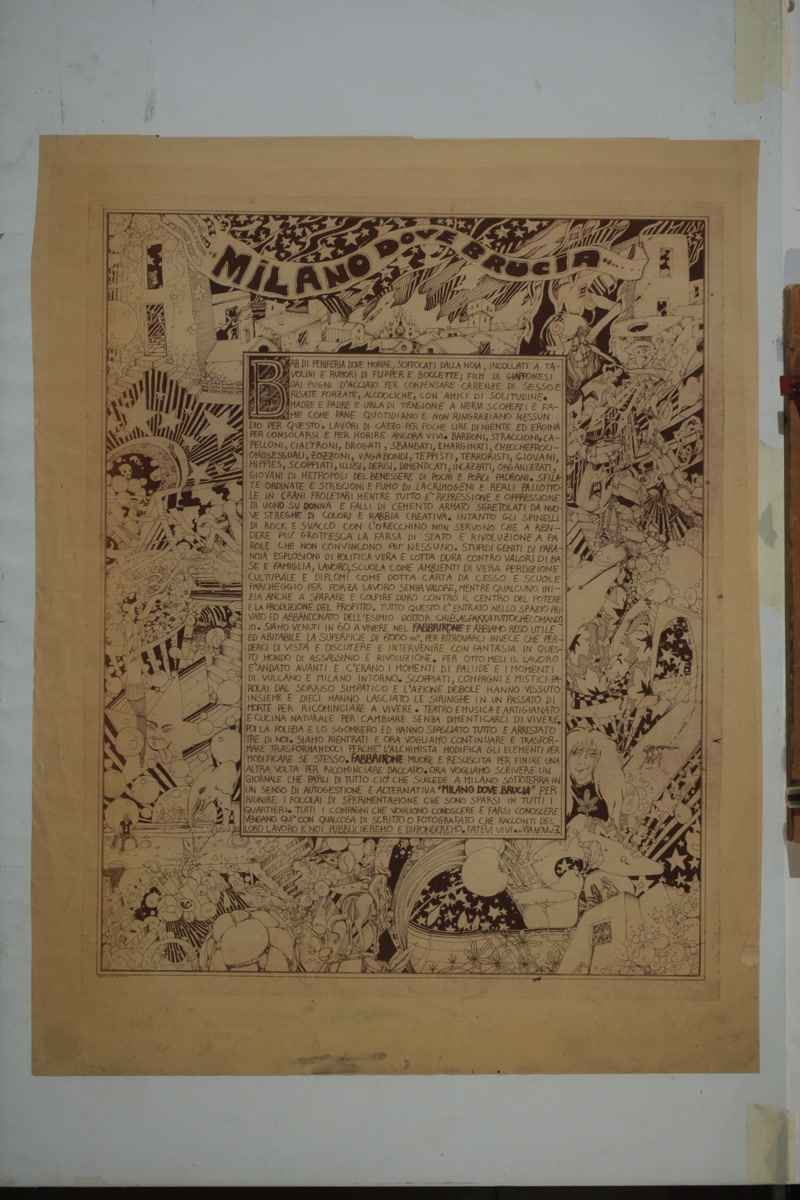 MILANO DOVE BRUCIA
BAR DI PERIFERIA DOVE MORIRE, SOFFOCATI DALLA NOIA, INCOLLATI A TA-
VOLINI E RUMORI DI FLIPPER E BOCCETTE; FILM DI GIAPPONESI
DAI PUGNI D'ACCIAIO PER COMPENSARE CARENZE DI SESSO E
RISATE FORZATE, ALCOOLICHE, CON AMICI DI SOLITUDINE.
MADRE E PADRE E URLA DI TENSIONE A NERVI SCOPERTI E FA-
ME COME PANE QUOTIDIANO E NON RINGRAZIANO NESSUN
DIO PER QUESTO. LAVORI DI CAZZO PER POCHE LIRE DI NIENTE ED EROINA
PER CONSOLARSI E PER MORIRE ANCORA VIVI. BARBONI, STRACCIONI, CA-
PELLONI, CIALTRONI, DROGATI, SBANDATI, EMARGINATI, CHECCHEFROCI-
OMOSESSUALI, ZOZZONI, VAGABONDI, TEPPISTI, TERRORISTI, GIOVANI,
HIPPIES, SCOPPIATI, ILLUSI, DERISI, DIMENTICATI, INCAZZATI, ORGANIZZATI,
GIOVANI DI METROPOLI DEL BENESSERE DI POCHI E PORCI PADRONI. SFILA-
TE ORDINATE E STRISCIONI E FUMO DI LACRIMOGENI E REALI PALLOTTO-
LE IN CRANI PROLETARI MENTRE TUTTO E' REPRESSIONE E OPPRESSIONE
DI UOMO SU DONNA E FALLI DI CEMENTO ARMATO SGRETOLATI DA NUO-
VE STREGHE DI COLORI E RABBIA CREATIVA. INTANTO GLI SPINELLI
DI ROCK E SVACCO CON L'ORECCHINO NON SERVONO CHE A REN-
DERE PIU' GROTTESCA LA FARSA DI STATO E RIVOLUZIONE A PA-
ROLE CHE NON CONVINCONO PIU' NESSUNO. STUPIDI GEMITI DI PARA-
NOIA ESPLOSIONI DI POLITICA VERA E LOTTA DURA CONTRO VALORI DI BA-
SE E FAMIGLIA, LAVORO, SCUOLA COME AMBIENTI DI VERA PERDIZIONE
CULTURALE E DIPLOMI COME DOTTA CARTA DA CESSO E SCUOLE
PARCHEGGIO PER FORZA LAVORO SENZA VALORE, MENTRE QUALCUNO INI-
ZIA ANCHE A SPARARE E COLPIRE DURO CONTRO IL CENTRO DEL POTERE
E LA PRODUZIONE DEL PROFITTO. TUTTO QUESTO E' ENTRATO NELLO SPAZIO PRI-
VATO ED ABBANDONATO DELL'ESIMIO DOTTOR
IO. SIAMO VENUTI IN 60 A VIVERE NEL FABBRIKONE E ABBIAMO RESO UTILE
ED ABITABILE LA SUPERFICIE DI 6000 m², PER RITROVARCI INVECE CHE PER-
DERCI DI VISTA E DISCUTERE E INTERVENIRE CON FANTASIA IN QUES-
TO MONDO DI ASSASSINIO E RIVOLUZIONE. PER OTTO MESI IL LAVORO
E' ANDATO AVANTI E C'ERANO I MOMENTI DI PALUDE E I MOMENTI
DI VULCANO E MILANO INTORNO. SCOPPIATI, COMPAGNI E MISTICI PA-
ROLAI DAL SORRISO SIMPATICO E L'AZIONE DEBOLE HANNO VISSUTO
INSIEME E DIECI HANNO LASCIATO LE SIRINGHE IN UN PASSATO DI
MORTE PER RICOMINCIARE A VIVERE. TEATRO E MUSICA E ARTIGIANATO
E CUCINA NATURALE PER CAMBIARE SENZA DIMENTICARCI DI VIVERE.
POI LA POLIZIA E LO SGOMBERO ED HANNO SPACCATO TUTTO E ARRESTATO
TRE DI NOI. SIAMO RIENTRATI E ORA VOGLIAMO CONTINUARE E TRASFOR-
MARE TRASFORMANDOCI PERCHE' L'ALCHIMISTA MODIFICA GLI ELEMENTI PER
MODIFICARE SE STESSO. FABBRIKONE MUORE E RESUSCITA PER FINIRE UNA
ALTRA VOLTA PER RICOMINCIARE DACCAPO. ORA VOGLIAMO SCRIVERE UN
GIORNALE CHE PARLI DI TUTTO CIO' CHE SUCCEDE A MILANO SOTTOTERRA IN
UN SENSO DI AUTOGESTIONE E ALTERNATIVA "MILANO DOVE BRUCIA" PER
RIUNIRE I FOCOLAI DI SPERIMENTAZIONE CHE SONO SPARSI IN TUTTI I
QUARTIERI. TUTTI I COMPAGNI CHE VOGLIONO CONOSCERE E FARSI CONOSCERE
VENGANO QUI' CON QUALCOSA DI SCRITTO O FOTOGRAFATO CHE RACCONTI DEL
LORO LAVORO E NOI PUBBLICHEREMO E DIFFONDEREMO. FATEVI VIVI.